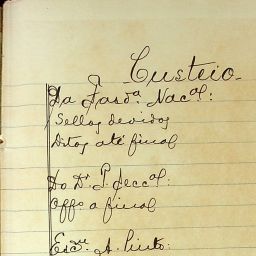 - Custeio -
Da Fazdª. Nacªl:
Sellos devidos
Ditos até final
Do Dr. P. Seccªl:
Offo a final
Escam A. Pinto: